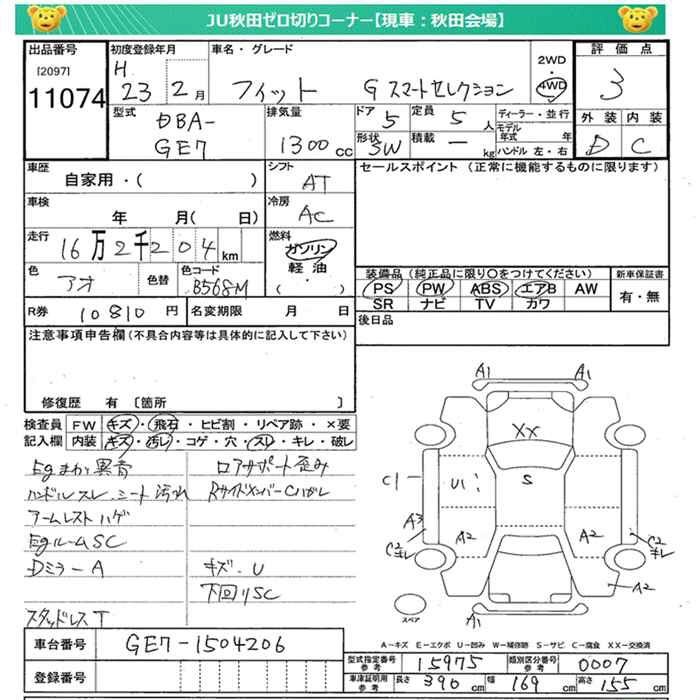 JU秋田ゼロ切りコーナー【現車：秋田会場】
出品番号
[2097]
11074
初度登録年月
H
23 2月
車名・グレード
フィット Gスマートセレクション
2WD
4WD
評価点
3
外装 内装
D C
型式
DBA-
GE7
排気量
1300cc
ドア
5
定員
5人
形状
SW
積載
ーkg
ディーラー・並行
モデル年式 年
ハンドル 左・右
車歴
自家用・( )
シフト
AT
セールスポイント (正常に機能するものに限ります)
車検
年 月( 日)
冷房
AC
走行
16万2千204km
燃料
ガソリン
軽油
( ・ )
色
アオ
色替
色コード
B568M
装備品 (純正品に限り○をつけてください)
PS PW ABS エアB AW
SR ナビ TV カワ
新車保証書
有・無
R券
10810円
名変期限 月 日
後日品
注意事項申告欄(不具合内容等は具体的に記入して下さい)
修復歴 有 〔箇所 〕
検査員記入欄
FW キズ・飛石・ヒビ割・リペア跡・×要
内装 キズ・汚レ・コゲ・穴・スレ・キレ・破レ
Egまわり異音
ロアサポート歪み
ハンドルスレ、シート汚れ
RサイドメンバーCハガレ
アームレストハゲ
EgルームSC
Dミラー A
キズ・U
下回りSC
スタッドレスT
A1 A1
XX
C1
U1
S
A3
A2 A2
C2
キレ
C2
キレ
A2
A1
スペア
A-キズ E-エクボ U-凹み W-補修跡 S-サビ C-腐食 XX-交換済
車台番号
GE7-1504206
登録番号
型式指定番号
参考
15975
類別区分番号
参考
0007
車庫証明用
参考
長さ 390cm
幅 169cm
高さ 155cm